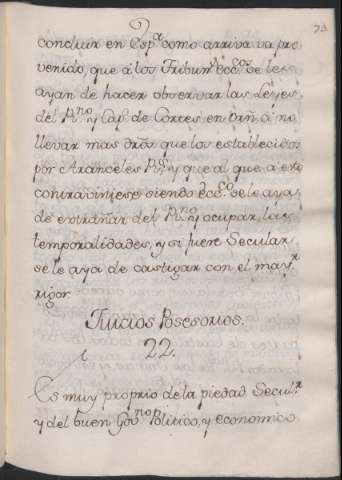 73.
concluir en Esp.ª como arriva va pre
venido, que á los Tribun.s ecc.cos se les
ayan de hacer observar las Leyes
del R.no y Cap.s de Cortes en orn. á no
llevar mas dros que los establecidos
por Aranceles R.s y que al que á esto
contraviniese siendo ecc.co se le aya
de extrañar del R.no y ocupar las
temporalidades, y si fuere Secular,
se le aya de castigar con el may.r
rigor.
Juicios Posesorios.
22.
Es muy proprio de la piedad Secul.r
y del buen Gov.no Politico, y economico